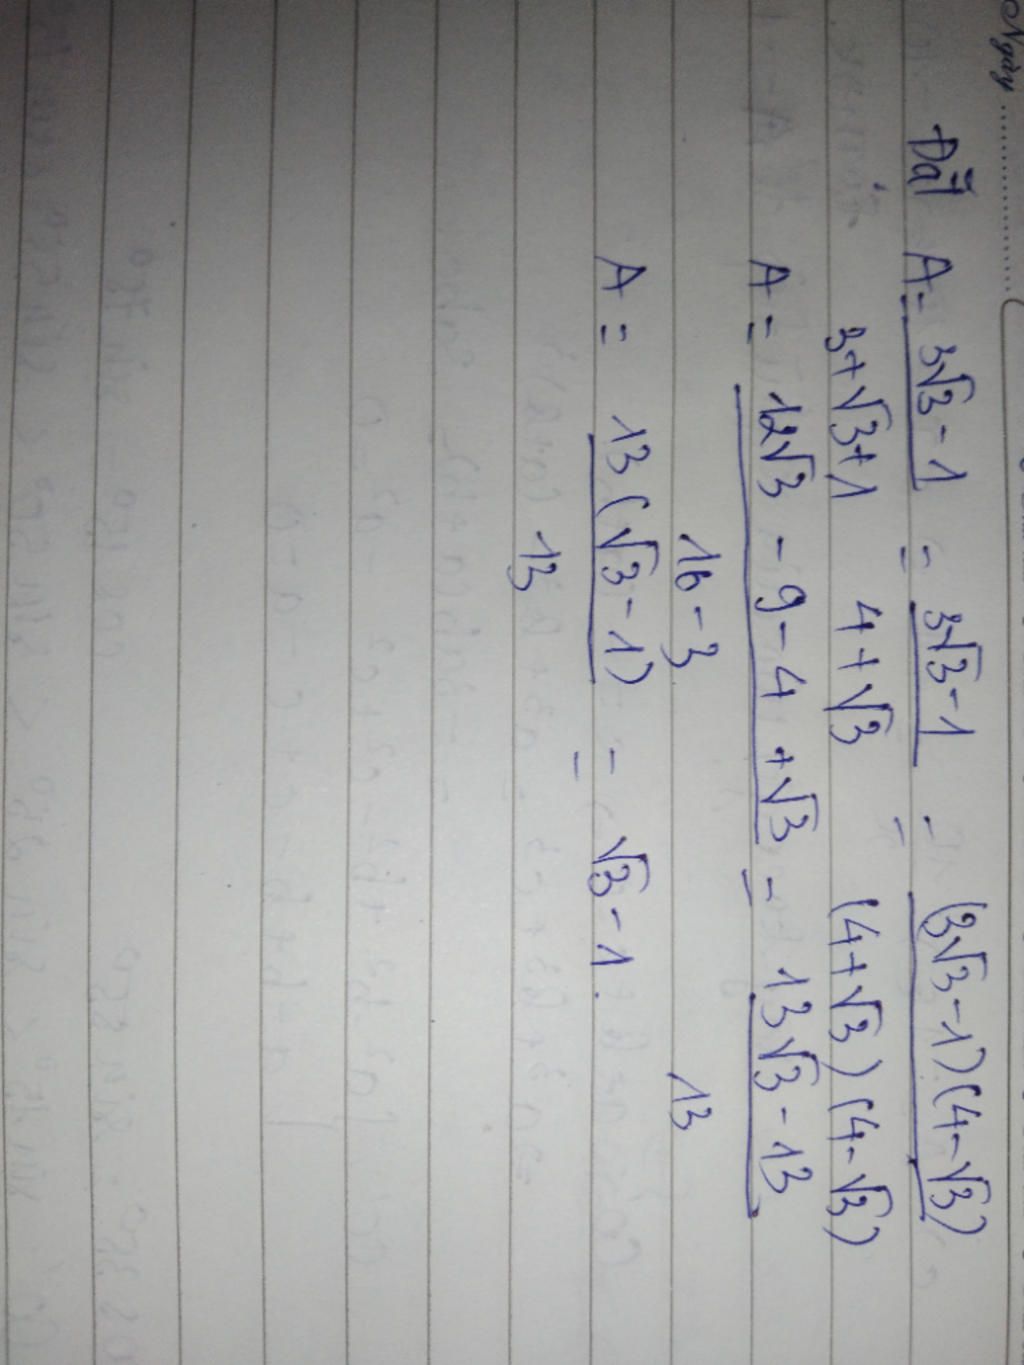 Ngày
Đặt A = 3√3 - 1 = 3√3 - 1 = (3√3 - 1)(4 - √3)
3 + √3 + 1 4 + √3 (4 + √3)(4 - √3)
A = 12√3 - 9 - 4 + √3 = 13√3 - 13
16 - 3 13
A = 13(√3 - 1) = √3 - 1.
13